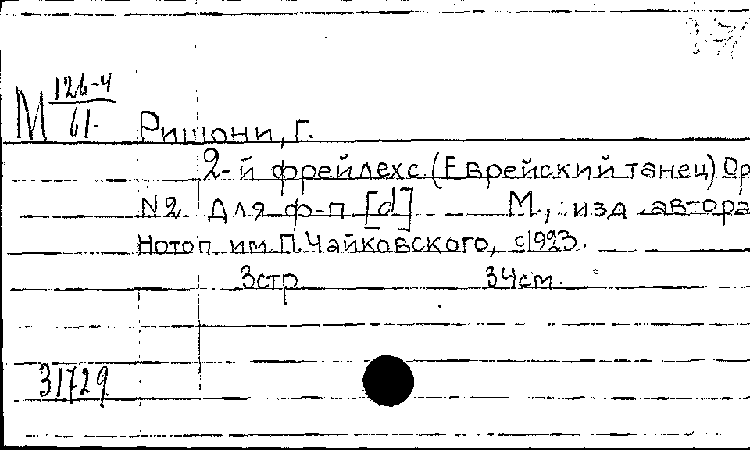 М 126-4
61.
Ришони, Г.
2-й фрейлехс (Еврейский танец) Ор
№2 Для ф-п [d] М., изд автора
Нотоп им.П.Чайковского, с1923.
3стр 34см.
31729